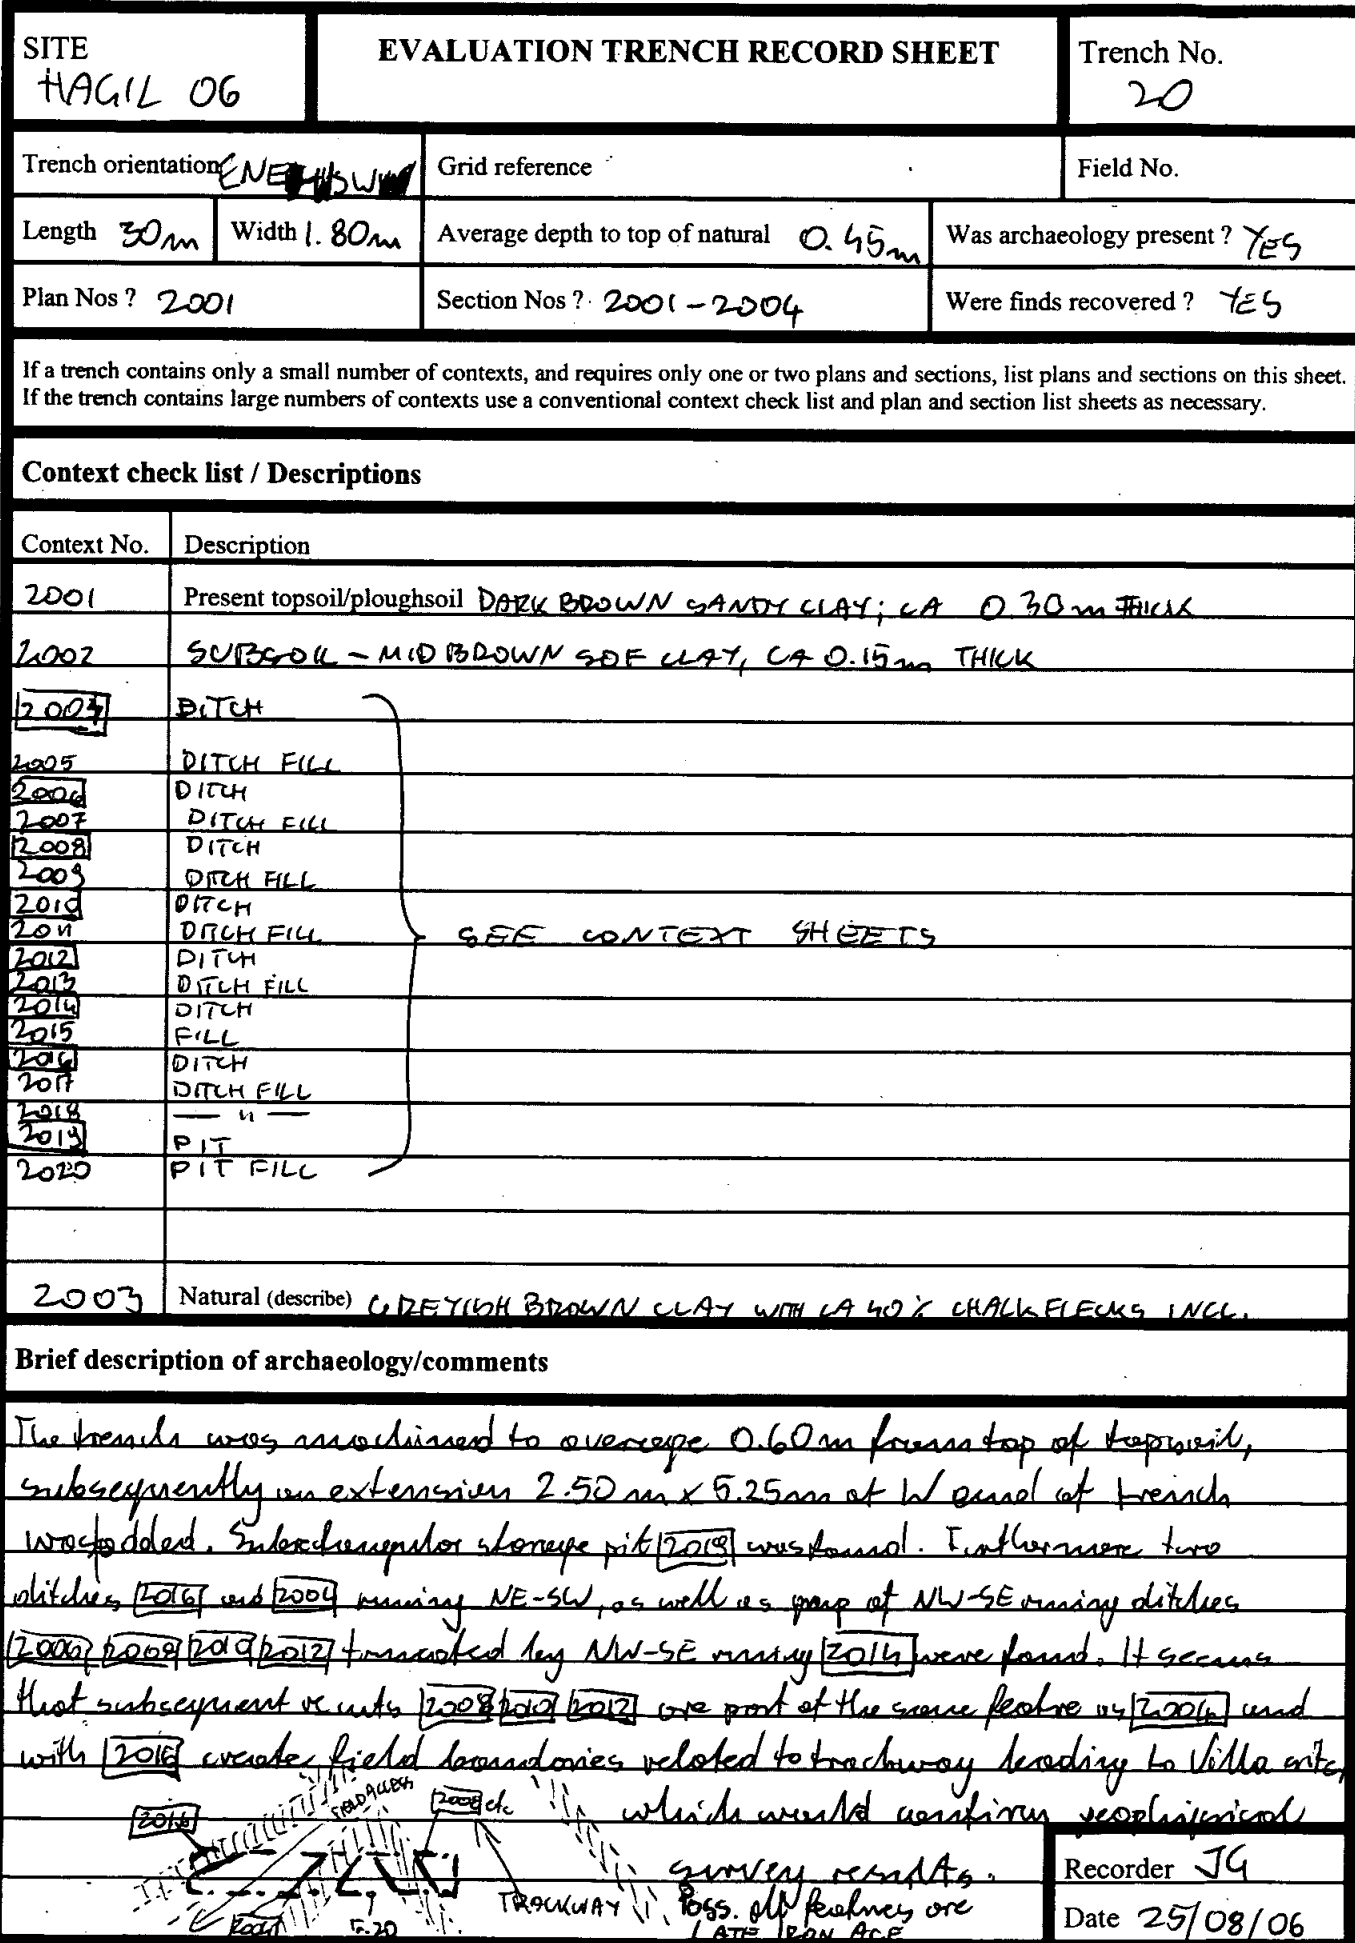 SITE
HAGIL 06
EVALUATION TRENCH RECORD SHEET
Trench No.
20
Trench orientation ENE SW
Grid reference
Field No.
Length 30m
Width 1.80m
Average depth to top of natural 0.45m
Was archaeology present ? YES
Plan Nos ? 2001
Section Nos ? 2001-2004
Were finds recovered ? YES
If a trench contains only a small number of contexts, and requires only one or two plans and sections, list plans and sections on this sheet.
If the trench contains large numbers of contexts use a conventional context check list and plan and section list sheets as necessary.
Context check list / Descriptions
Context No. Description
2001 Present topsoil/ploughsoil DARK BROWN SANDY CLAY; CA 0.30m THICK
2002 SUBSOIL - MID BROWN SOF CLAY, CA 0.15m THICK
2004 DITCH
2005 DITCH FILL
2006 DITCH
2007 DITCH FILL
2008 DITCH
2009 DITCH FILL
2010 DITCH
2011 DITCH FILL
SEE CONTEXT SHEETS
2012 DITCH
2013 DITCH FILL
2014 DITCH
2015 FILL
2016 DITCH
2017 DITCH FILL
2018 — " —
2019 PIT
2020 PIT FILL
2003 Natural (describe) GREYISH BROWN CLAY WITH CA 40% CHALK FLECKS INCL.
Brief description of archaeology/comments
The trench was machined to average 0.60m from top of topsoil,
subsequently an extension 2.50m x 5.25m at W end of trench
was added. Subrectangular storage pit 2019 was found. Furthermore two
ditches 2016 and 2004 running NE-SW, as well as group of NW-SE running ditches
2006 2008 2010 2012 truncated by NW-SE running 2014 were found. It seems
that subsequent recuts 2008 2010 2012 are part of the same feature as 2004 and
with 2016 create field boundaries related to trackway leading to Villa site,
which would confirm geophisical
survey results.
Poss. all features are
LATE IRON AGE
2016
FIELD ACCESS
2008 etc
TRACKWAY
2004
T.20
Recorder JG
Date 25/08/06